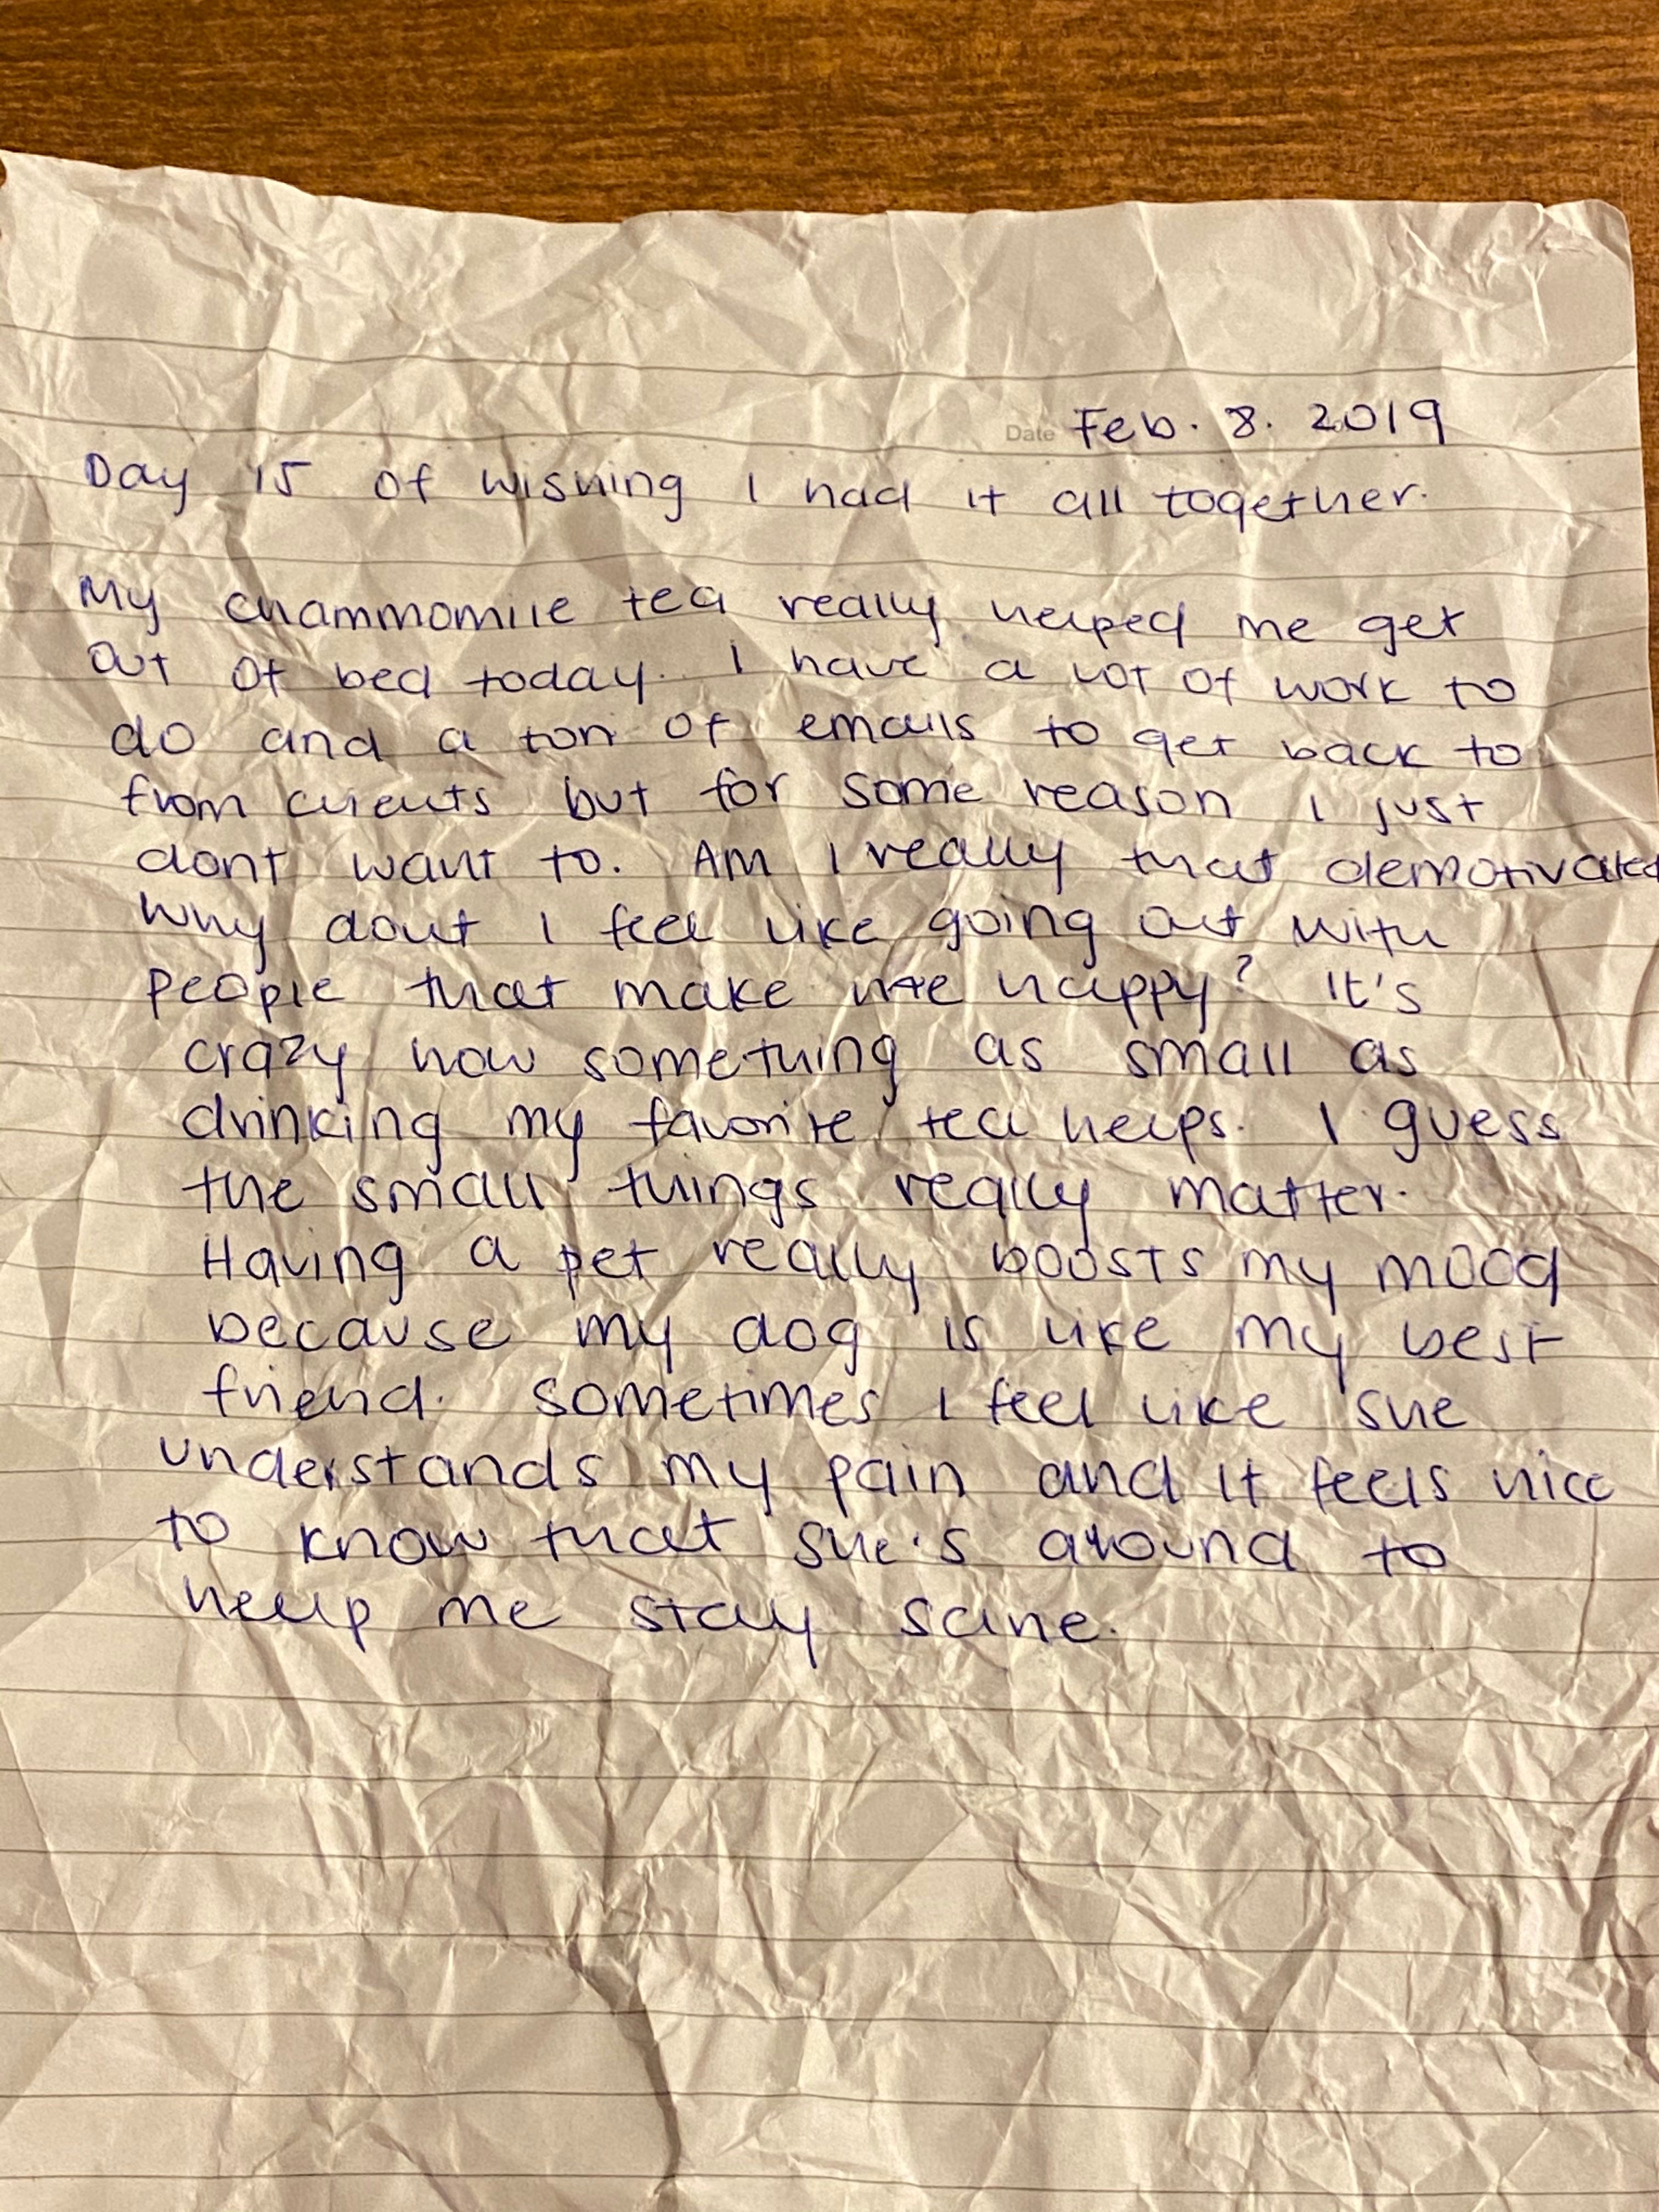 Date Feb. 8. 2019
Day 15 of wishing I had it all together.
My chammomile tea really helped me get
out of bed today. I have a lot of work to
do and a ton of emails to get back to
from clients but for some reason I just
dont want to. Am I really that demotivated
Why dont I feel like going out with
people that make me happy? It's
crazy how something as small as
drinking my favorite tea helps. I guess
the small things really matter.
Having a pet really boosts my mood
because my dog is like my best
friend. Sometimes I feel like she
understands my pain and it feels nice
to know that she's around to
help me stay sane.